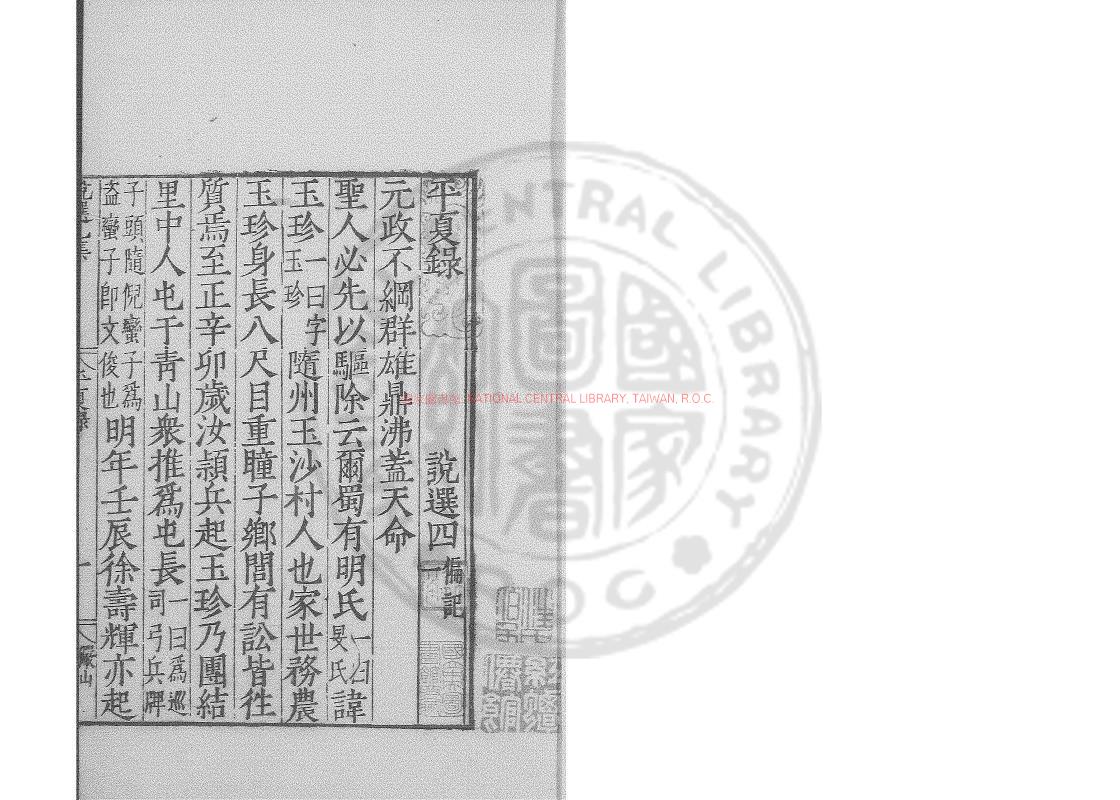 平夏錄　說選四　偏記一
元政不綱群雄鼎沸蓋天命
聖人必先以驅除云爾蜀有明氏一曰旻氏諱
玉珍一曰字玉珍隨州玉沙村人也家世務農
玉珍身長八尺目重瞳子鄉閭有訟皆往
質焉至正辛卯歲汝潁兵起玉珍乃團結
里中人屯于青山衆推爲屯長一曰爲巡司弓兵牌
子頭隨倪蠻子爲盗蠻子卽文俊也明年壬辰徐壽輝亦起
NATIONAL CENTRAL LIBRARY, TAIWAN, R.O.C.
CENTRAL LIBRARY
R.O.C
國家圖書館